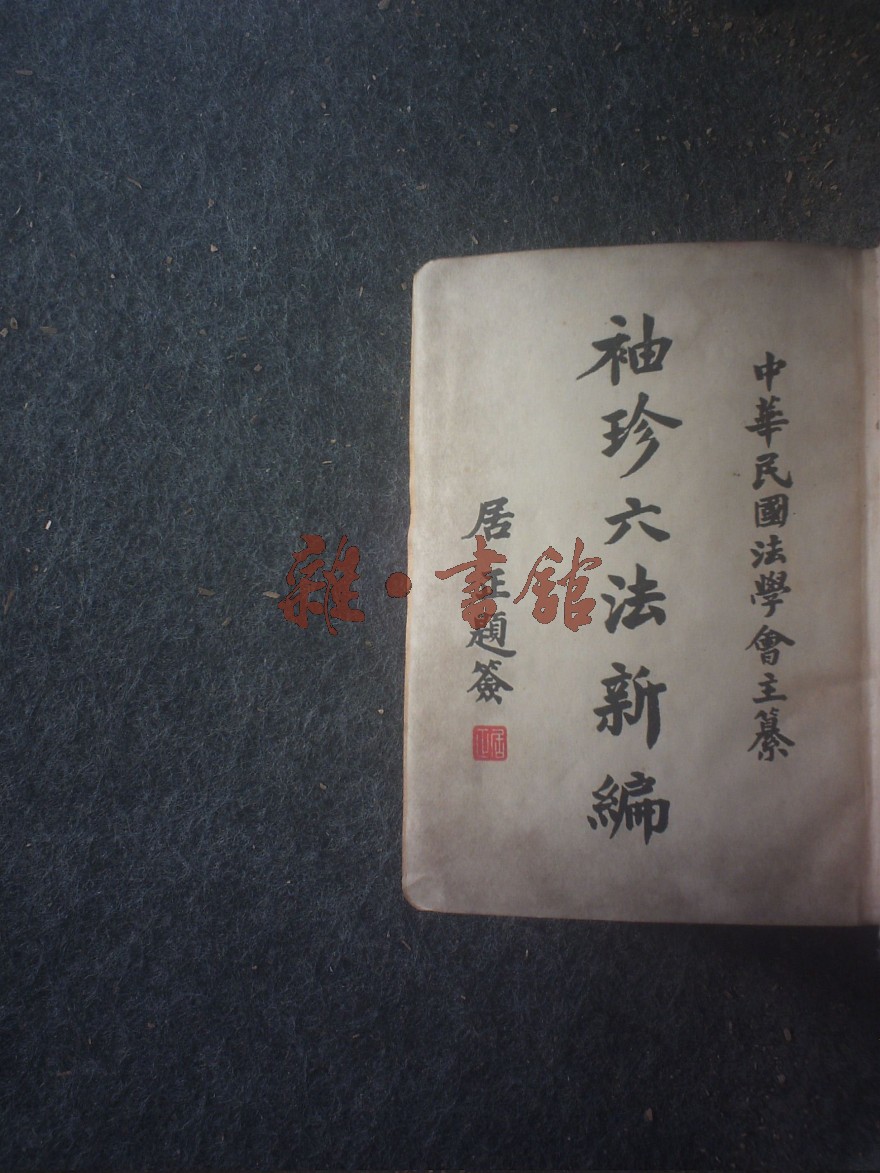 中華民國法學會主纂
袖珍六法新編
居正題簽
雜·書館